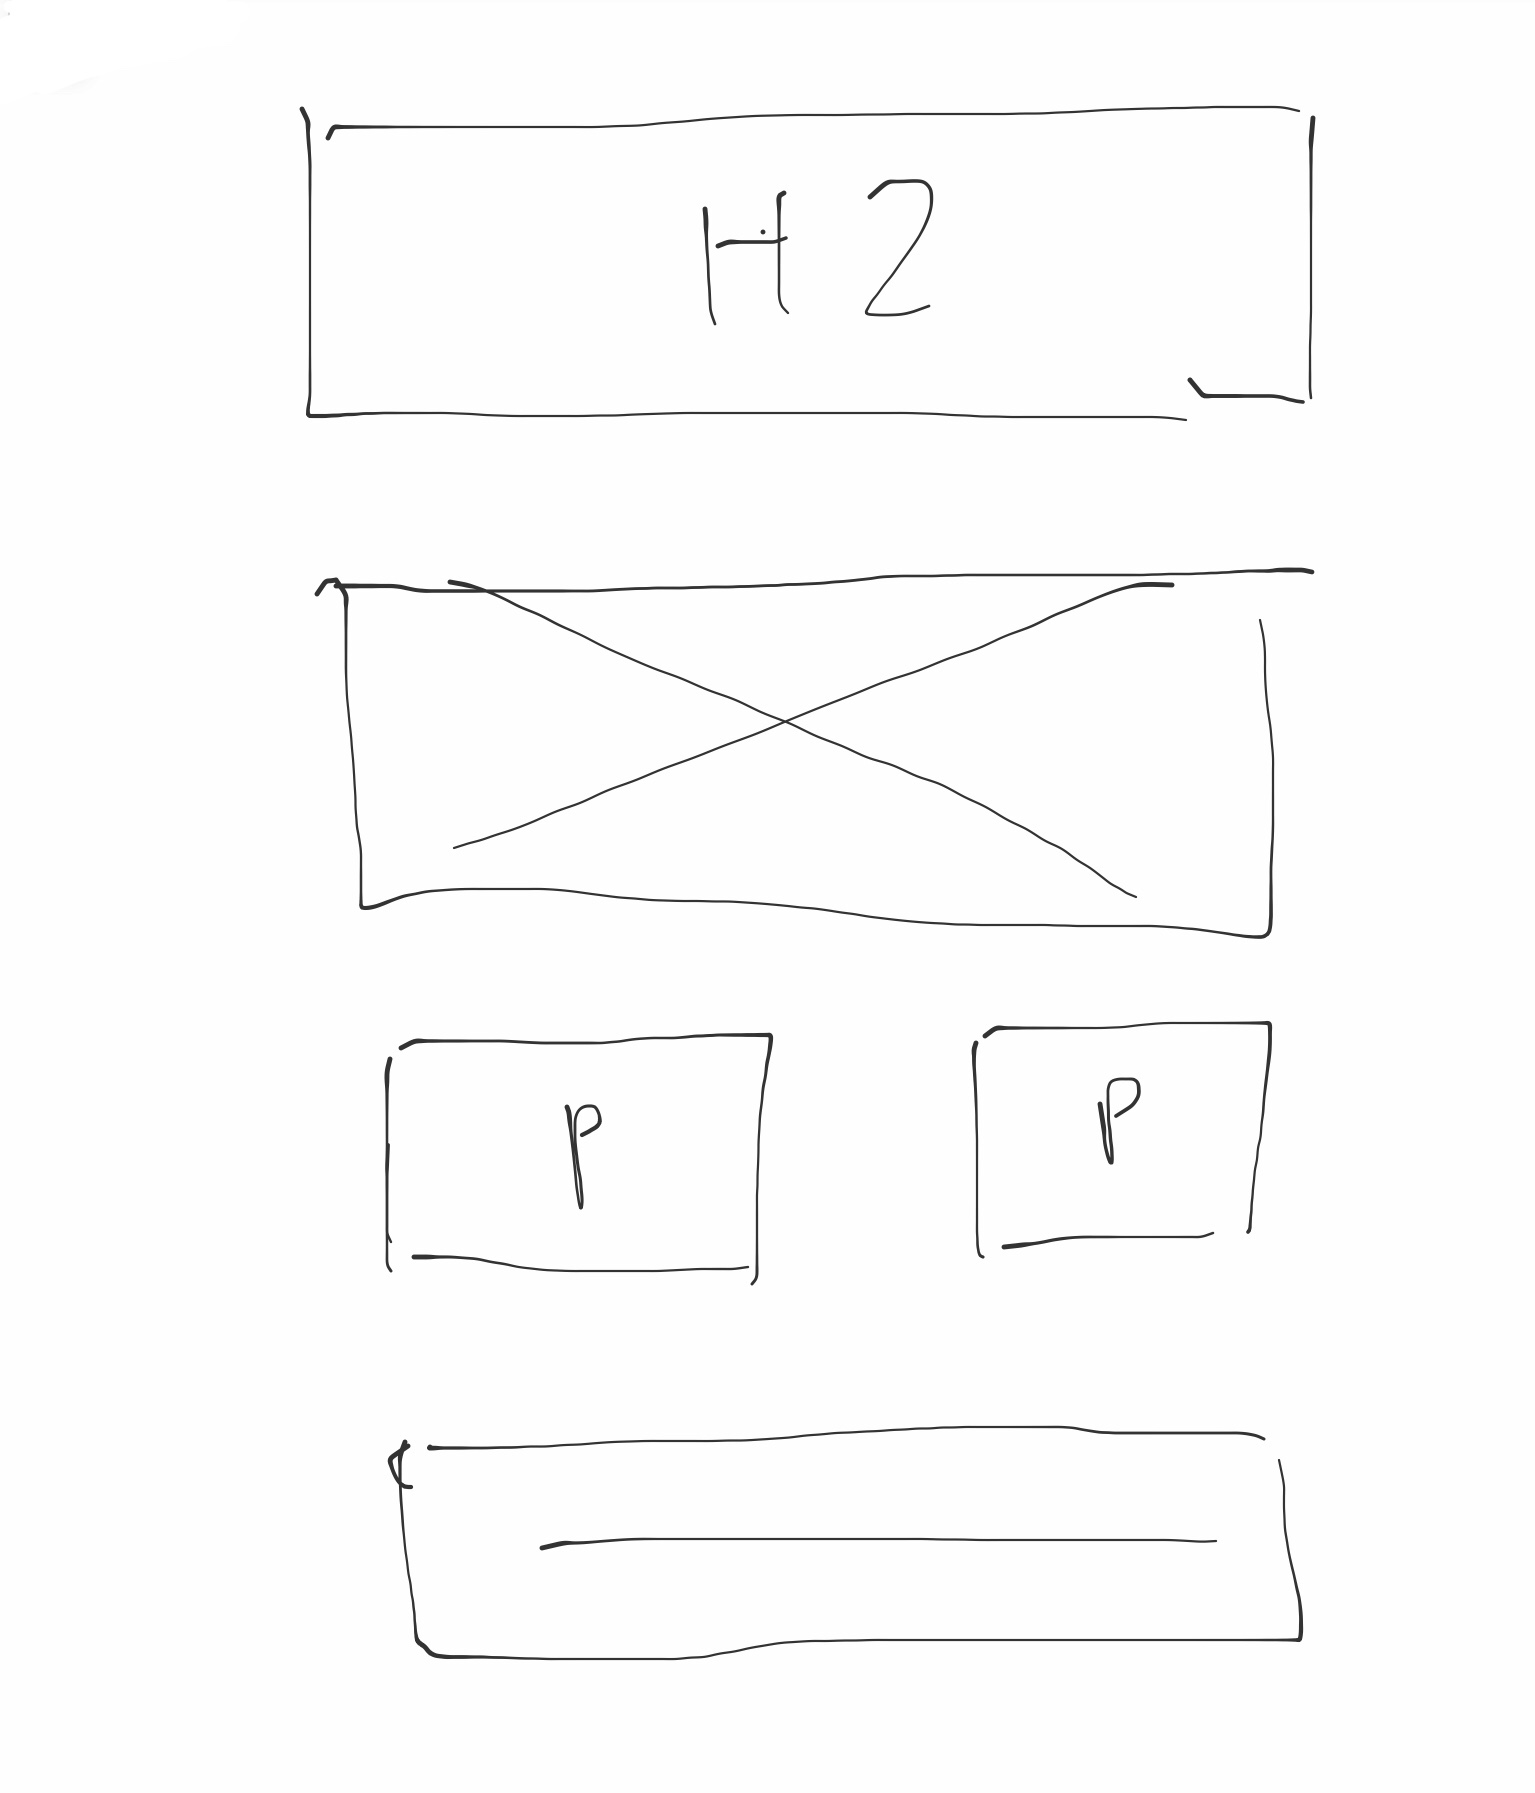 H2
P P